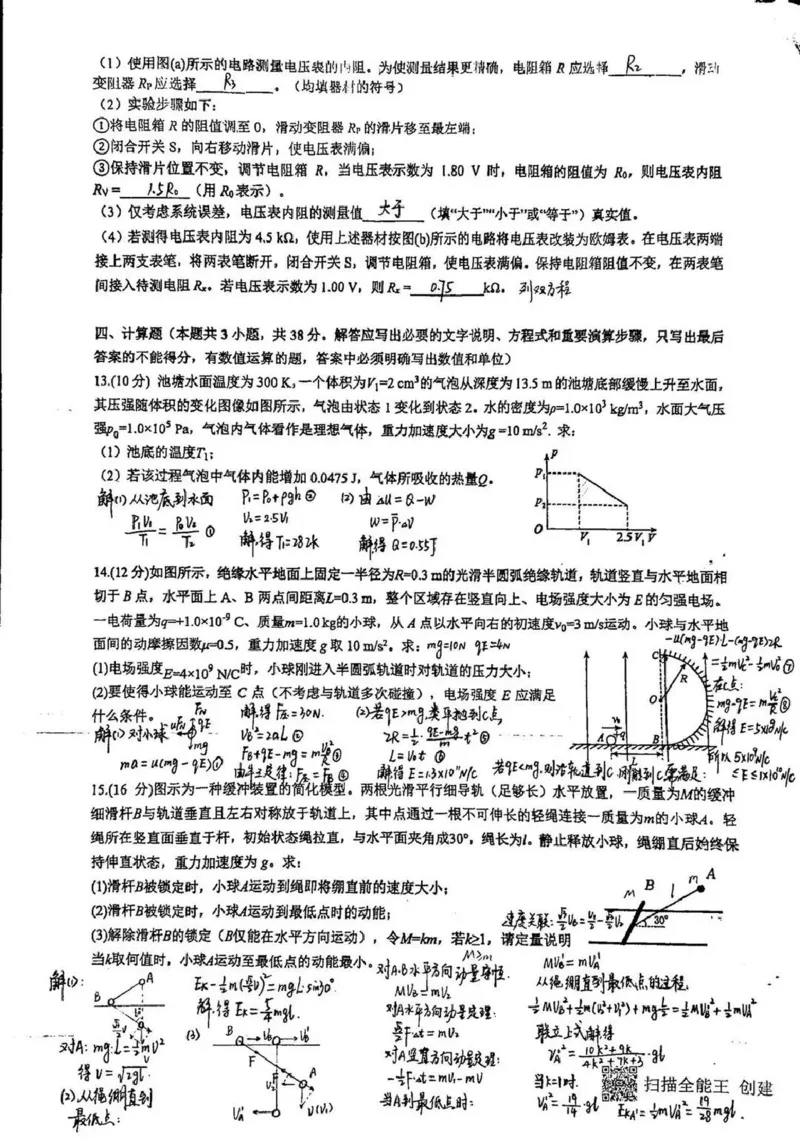 (1) 使用图(a)所示的电路测量电压表的内阻。为使测量结果更精确，电阻箱 R 应选择 R₂ ，滑动
变阻器 Rₚ 应选择 R₃ 。（均填器材的符号）
(2) 实验步骤如下：
①将电阻箱 R 的阻值调至 0，滑动变阻器 Rₚ 的滑片移至最左端；
②闭合开关 S，向右移动滑片，使电压表满偏；
③保持滑片位置不变，调节电阻箱 R，当电压表示数为 1.80 V 时，电阻箱的阻值为 R₀，则电压表内阻
Rv= 1.5R₀ （用 R₀ 表示）。
(3) 仅考虑系统误差，电压表内阻的测量值 大于 （填“大于”“小于”或“等于”）真实值。
(4) 若测得电压表内阻为 4.5 kΩ，使用上述器材按图(b)所示的电路将电压表改装为欧姆表。在电压表两端
接上两支表笔，将两表笔断开，闭合开关 S，调节电阻箱，使电压表满偏。保持电阻箱阻值不变，在两表笔
间接入待测电阻 Rₓ。若电压表示数为 1.00 V，则 Rₓ= 0.75 kΩ。 列双方程
四、计算题（本题共 3 小题，共 38 分。解答应写出必要的文字说明、方程式和重要演算步骤，只写出最后
答案的不能得分，有数值运算的题，答案中必须明确写出数值和单位）
13.(10分) 池塘水面温度为 300 K，一个体积为V₁=2 cm³的气泡从深度为 13.5 m 的池塘底部缓慢上升至水面，
其压强随体积的变化图像如图所示，气泡由状态 1 变化到状态 2。水的密度为ρ=1.0×10³ kg/m³，水面大气压
强p₀=1.0×10⁵ Pa，气泡内气体看作是理想气体，重力加速度大小为g =10 m/s². 求：
(1) 池底的温度T₁；
(2) 若该过程气泡中气体内能增加 0.0475 J，气体所吸收的热量Q。
p
P₁
P₂
O V₁ 2.5V₁ V
解(1)从池底到水面 P₁=P₀+ρgh ② (2) 由 ΔU=Q-W
P₁V₁/T₁ = P₀V₂/T₂ ① V₂=2.5V₁ W=P̄·ΔV
解得T₁=282K 解得 Q=0.55J
14.(12分)如图所示，绝缘水平地面上固定一半径为R=0.3 m的光滑半圆弧绝缘轨道，轨道竖直与水平地面相
切于 B 点，水平面上 A、B 两点间距离L=0.3 m，整个区域存在竖直向上、电场强度大小为 E 的匀强电场。
一电荷量为q=+1.0×10⁻⁹ C、质量m=1.0 kg的小球，从 A 点以水平向右的初速度v₀=3 m/s运动。小球与水平地
面间的动摩擦因数μ=0.5，重力加速度 g 取 10 m/s²。求： mg=10N qE=4N
-μ(mg-qE)·L-(mg-qE)2R
=½mVc²-½mV₀² ⑦
(1)电场强度E=4×10⁹ N/C时，小球刚进入半圆弧轨道时对轨道的压力大小；
(2)要使得小球能运动至 C 点（不考虑与轨道多次碰撞），电场强度 E 应满足
什么条件。
C
R
O
v₀
A q B
在C点：
mg-qE=mVc²/R ⑧
解得 E=5×10⁹N/C
所以 5×10⁹N/C
≤E≤1×10¹⁰N/C
解(1) 对小球 μF_N F_N qE mg
ma=μ(mg-qE) ①
V_B²=2aL ②
F_B+qE-mg=mV_B²/R ③
由牛三定律：F压=F_B ④
解得F压=30N.
(2)若qE>mg.类平抛到C点,
2R=½·(qE-mg)/m·t² ⑤
L=V₀t ⑥
解得 E=1.3×10¹⁰N/C
若qE<mg,则沿轨道到C.刚能到C需满足：
15.(16 分)图示为一种缓冲装置的简化模型。两根光滑平行细导轨（足够长）水平放置，一质量为M的缓冲
细滑杆B与轨道垂直且左右对称放于轨道上，其中点通过一根不可伸长的轻绳连接一质量为m的小球A。轻
绳所在竖直面垂直于杆，初始状态绳拉直，与水平面夹角成30°，绳长为l。静止释放小球，绳绷直后始终保
持伸直状态，重力加速度为 g。求：
(1)滑杆B被锁定时，小球A运动到绳即将绷直前的速度大小；
(2)滑杆B被锁定时，小球A运动到最低点时的动能；
(3)解除滑杆B的锁定（B仅能在水平方向运动），令M=km，若k≥1，请定量说明
当k取何值时，小球A运动至最低点的动能最小。
M B l m A
30°
M≥m
解(1)： A B
对A: mg·L=½mV²
得 V=√2gl
(2).从绳绷直到
最低点：
E_K-½m(√3/2V)²=mgl·sin30°
解得 E_K=5/4mgl.
(3) B V_B V_B'
F F A
V_A' V(V₁)
对A.B水平方向动量守恒.
MV_B=mV₂
对A水平方向动量定理：
√3/2F·Δt=mV₂
对A竖直方向动量定理：
-½F·Δt=mV₁-mV
当A到最低点时：
MV_B'=mV_A'
从绳绷直到最低点的过程.
½MV_B²+½m(V₂²+V₁²)+mg·l/2=½MV_B'²+½mV_A'²
联立上式解得
V_A'²=(10k²+9k)/(4k²+7k+3)·gl
当k=1时
V_A'²=19/14·gl E_KA'=½mV_A'²=19/28mgl.
扫描全能王 创建